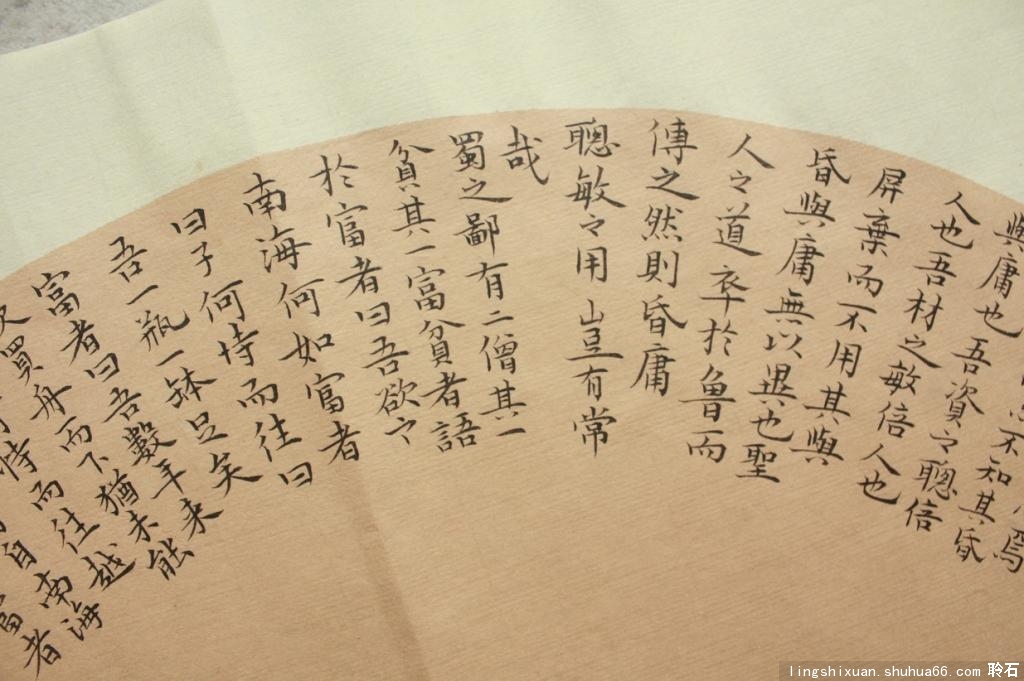 焉
不知其昏
與庸也吾資之聰倍
人也吾材之敏倍人也
屏棄而不用其與
昏與庸無以異也聖
人之道卒於魯而
傳之然則昏庸
聰敏之用豈有常
哉
蜀之鄙有二僧其一
貧其一富貧者語
於富者曰吾欲之
南海何如富者
曰子何恃而往曰
吾一瓶一缽足矣
富者曰吾數年来
買舟而下猶未能
恃而往越
自南海
富者
lingshixuan.shuhua66.com 聆石